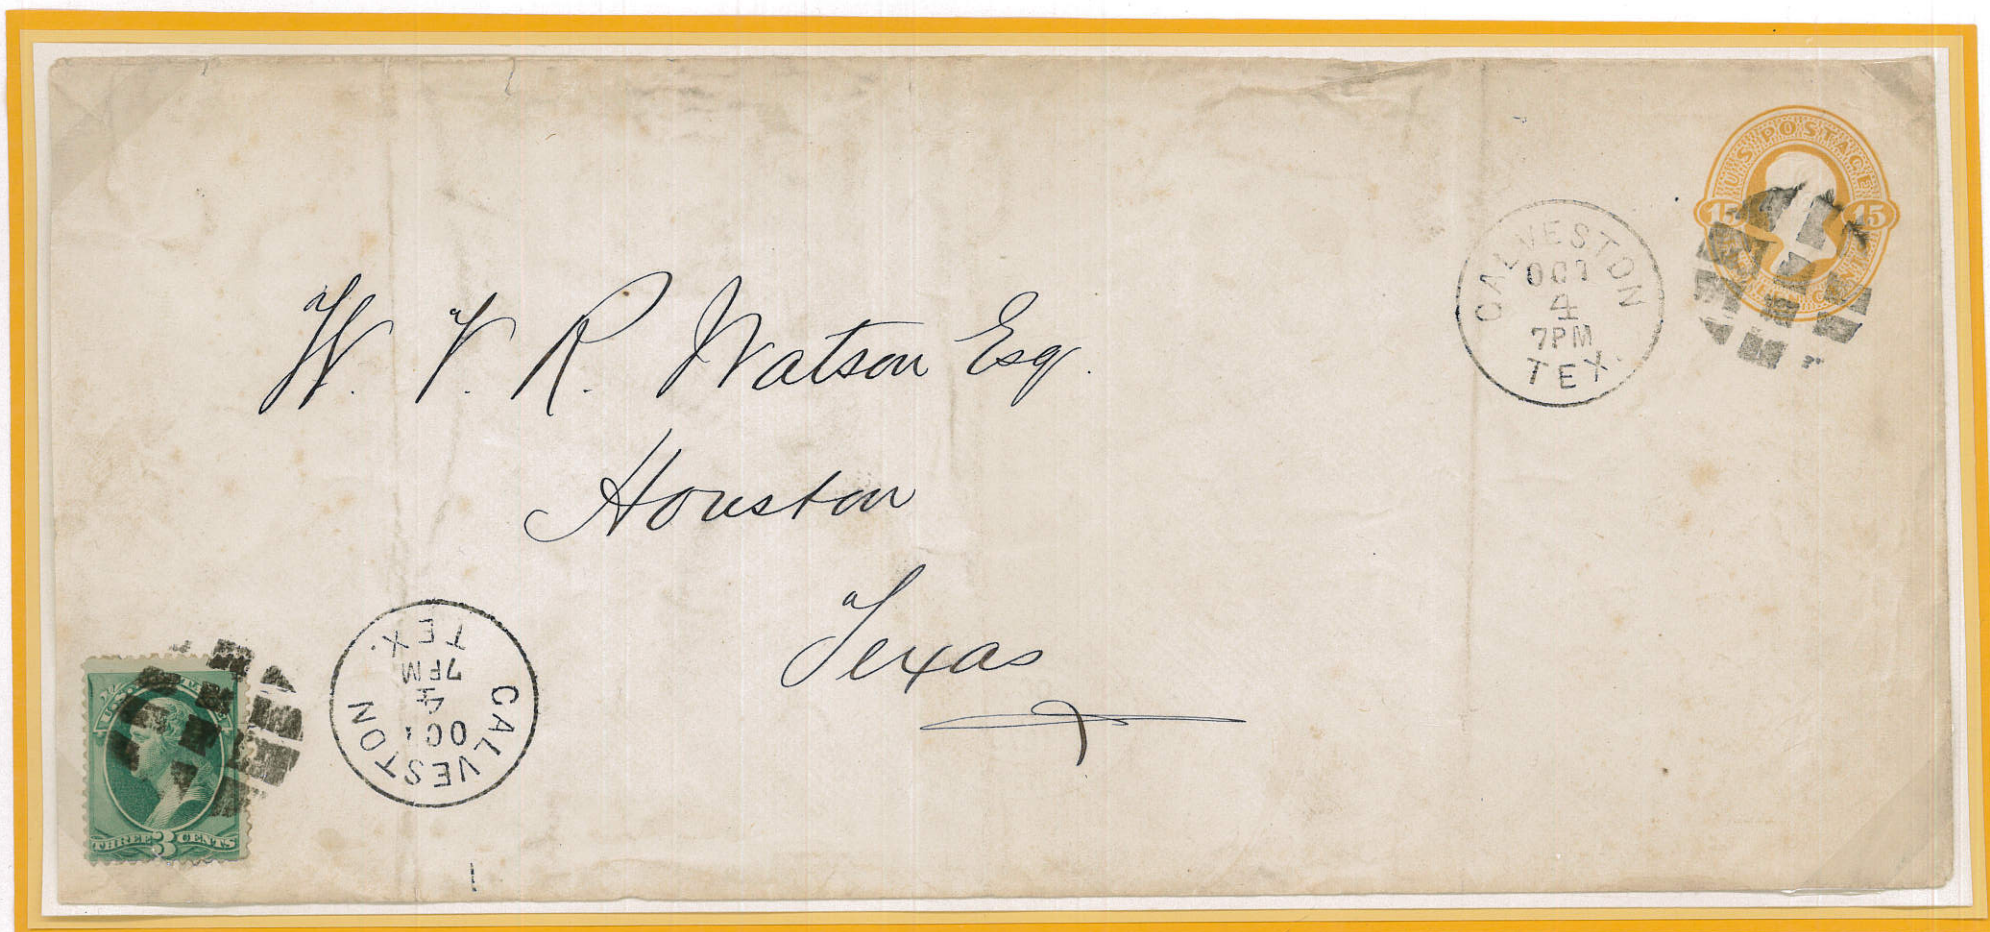 U.S. POSTAGE
15 15
GALVESTON
OCT
4
7PM
TEX.
W. V. R. Watson Esq.
Houston
Texas
GALVESTON
OCT
4
7PM
TEX.
THREE 3 CENTS